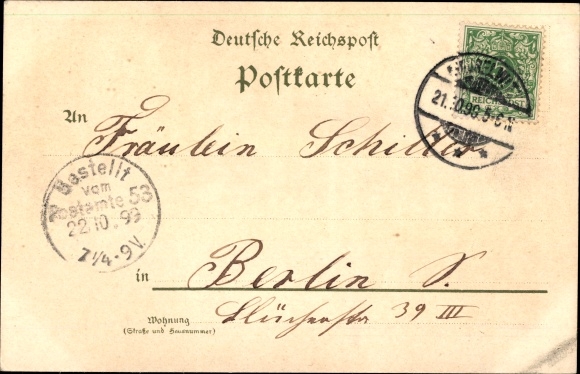 Deutsche Reichspost
Postkarte
REICHSPOST
21.10.96.5-6N
An Fräulein Schiller
Bestellt
vom
Postamte 53
22.10.96
7¼-9V.
in Berlin S.
Wohnung
(Straße und Hausnummer)
Blücherstr 39 III